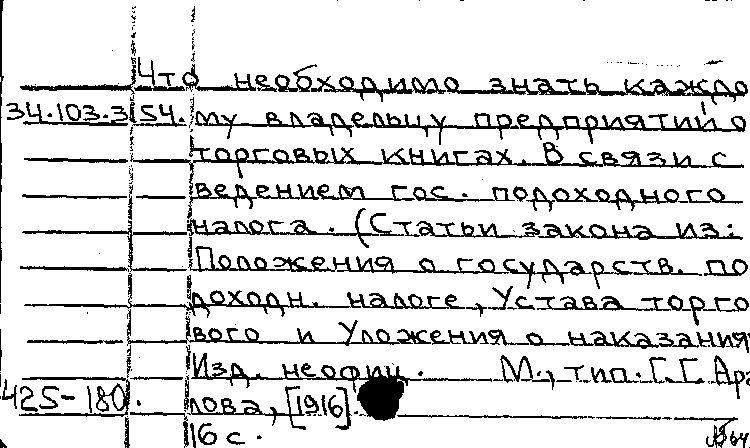 Что необходимо знать каждо
34.103.3 54. му владельцу предприятий о
торговых книгах. В связи с
ведением гос. подоходного
налога. (Статьи закона из:
Положения о государств. по
доходн. налоге, Устава торго
вого и Уложения о наказания
Изд. неофиц. М., тип. Г.Г. Ара
425-180. лова, [1916].
16 с.